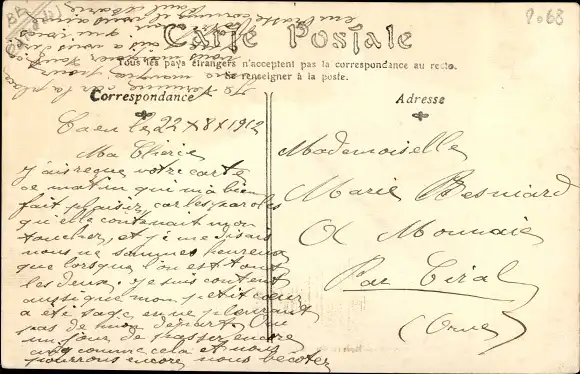 P.68
Carte Postale
Tous les pays étrangers n'acceptent pas la correspondance au recto.
Se renseigner à la poste.
Correspondance
Adresse
Caen le 22 X 8 X 1912
Ma Chérie
j'ai reçue votre carte
ce matin qui m'a bien
fait plaisir, car les paroles
qu'elle contenait mon
toucher, et je me disais
nous ne sommes heureux
que lorsque l'on est tous
les deux. Je suis content
aussi que mon petit cœur
a été sage, en ne pleurant
pas de mon départ. Que
un jour de passer encore
comme cela et nous
pourrons encore nous bécoter
Mademoiselle
Marie Besniard
A Monnaie
Par Ciral
(Orne)